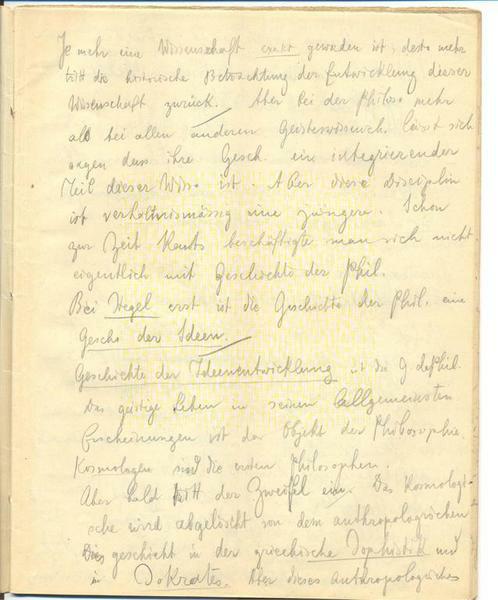 Je mehr eine Wissenschaft exakt geworden ist, desto mehr
tritt die historische Betrachtung der Entwicklung dieser
Wissenschaft zurück. Aber bei der Philos mehr
als bei allen anderen Geisteswissensch. lässt sich
sagen dass ihre Gesch. ein integrierender
Teil dieser Wiss ist. Aber diese Disciplin
ist verhältnismässig eine jüngere. Schon
zur Zeit Kants beschäftigte man sich nicht
eigentlich mit Geschichte der Phil.
Bei Hegel erst ist die Geschichte der Phil. eine
Gesch. der Ideen.
Geschichte der Ideenentwicklung ist die G. der Phil.
Das geistige Leben in seinen allgemeinsten
Erscheinungen ist das Objekt der Philosophie.
Kosmologen sind die ersten Philosophen.
Aber bald tritt der Zweifel ein. Das Kosmologi-
sche wird abgelöscht von dem anthropologischen
Dies geschieht in der griechischen Sophistik und
in Sokrates. Aber dieses Anthropologische